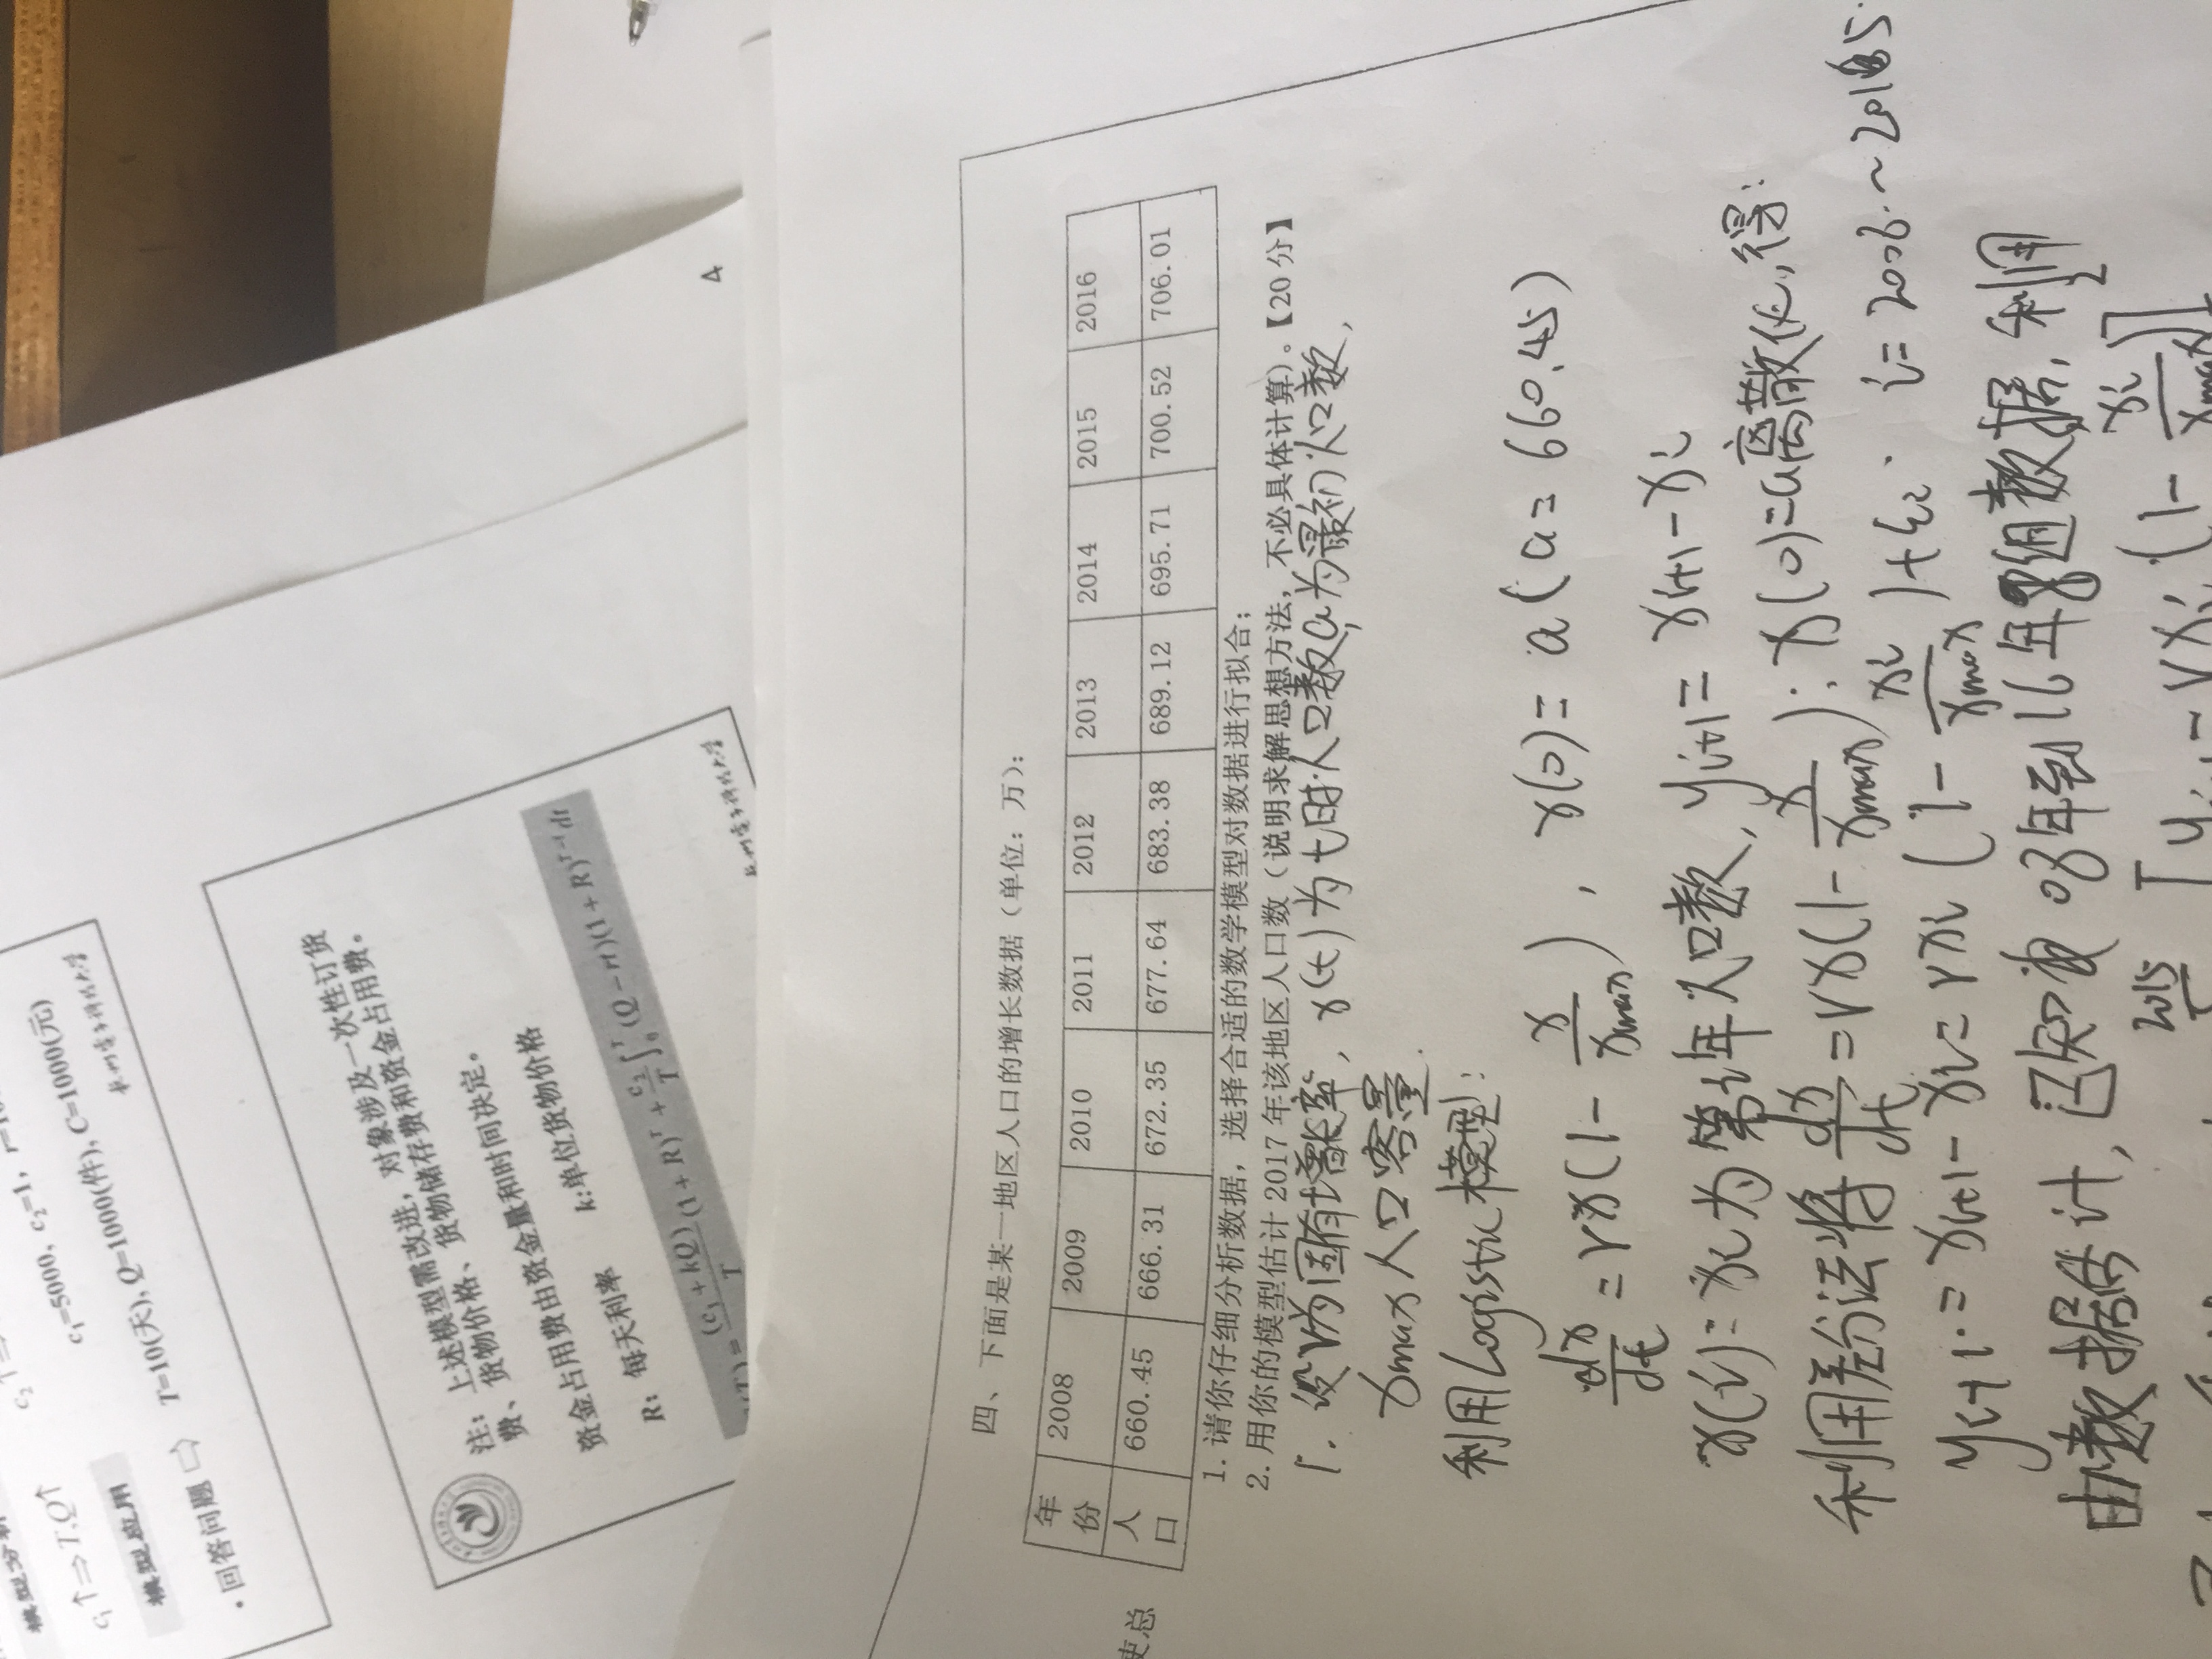 模型分析
c₁↑⇒T,Q↑
c₂↑⇒
模型应用
c₁=5000, c₂=1,
·回答问题 ⇨ T=10(天), Q=1000(件), C=1000(元)
杭州电子科技大学
注：上述模型需改进，对象涉及一次性订货
费、货物价格、货物储存费和资金占用费。
资金占用费由资金量和时间决定。
R：每天利率 k:单位货物价格
(T)=\frac{(c₁+kQ)}{T}(1+R)^T+\frac{c₂}{T}∫₀^T(Q-rt)(1+R)^{T-t}dt
杭州电子科技大学
4
使总
四、下面是某一地区人口的增长数据（单位：万）：
年份 2008 2009 2010 2011 2012 2013 2014 2015 2016
人口 660.45 666.31 672.35 677.64 683.38 689.12 695.71 700.52 706.01
1. 请你仔细分析数据，选择合适的数学模型对数据进行拟合；
2. 用你的模型估计 2017 年该地区人口数（说明求解思想方法，不必具体计算）。【20 分】
1. 设r为固有增长率, x(t)为t时人口数,a为最初人口数,
xmax人口容量.
利用Logistic模型:
\frac{dx}{dt}=rx(1-\frac{x}{xmax}), x(0)=a(a=660.45)
x(i)=xi为第i年人口数, yi+1=xi+1-xi
利用差分法将\frac{dx}{dt}=rx(1-\frac{x}{xmax}); x(0)=a离散化,得:
yi+1=xi+1-xi=rxi(1-\frac{xi}{xmax})+εi. i=2008~2015.
由数据估计,已知 08年到16年 组数据,利用
2015
[yi+1-rxi(1-\frac{xi}{xmax})]²